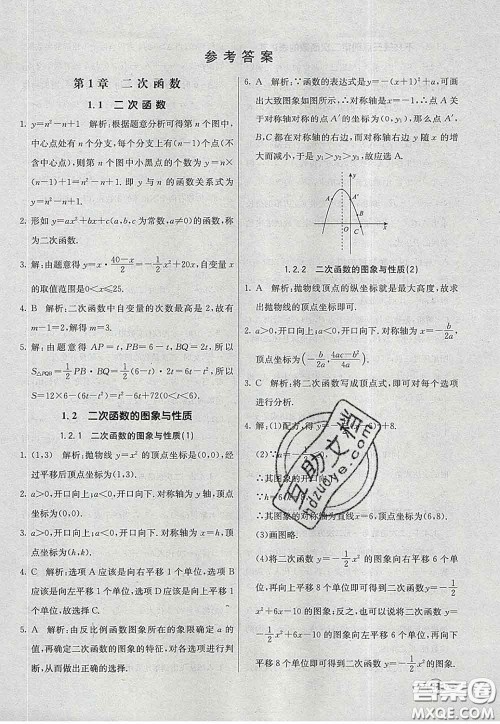 参考答案
第1章 二次函数
1.1 二次函数
1. y=n²-n+1 解析:根据题意分析可得第n个图中,
中心点处有n个分支,每个分支上有(n-1)个点(不
含中心点),则第n个图中小黑点的个数为y=n×
(n-1)+1=n²-n+1. 即y与n的函数关系式为
y=n²-n+1.
2. 形如y=ax²+bx+c(a,b,c为常数,a≠0)的函数,称
为二次函数.
3. 解:由题意得y=x·(40-x)/2=-1/2x²+20x,自变量x
的取值范围是0<x≤25.
4. B 解析:二次函数中自变量的次数最高是2,故有
m-1=2,解得m=3.
5. 解:由题意得AP=t,PB=6-t,BQ=2t,所以
S△PQB=1/2PB·BQ=1/2(6-t)·2t=-t²+6t,所以
S=12×6-(6t-t²)=t²-6t+72(0<t<6).
1.2 二次函数的图象与性质
1.2.1 二次函数的图象与性质(1)
1. (1,3) 解析:因为y=x²的顶点坐标为(0,0),所以
经过平移后顶点坐标为(1,3).
2. a>0,开口向上;a<0,开口向下. 对称轴为y轴,顶点
坐标为(0,k).
3. a>0,开口向上;a<0,开口向下. 对称轴为x=h,顶点
坐标为(h,k).
4. C 解析:选项A应该是向右平移1个单位,选项B
应该是向左平移1个单位,选项D应该是向下平移
1个单位,故选择C.
5. A 解析:由反比例函数图象所在的象限确定a的
值,再由二次函数的图象的特征,对各选项进行判
断,从而做出正确的选择.
6. A 解析:∵函数的表达式是y=-(x+1)²+a,可画
出大致图象如图所示,∴对称轴是x=-1,∴点A关
于对称轴对称的点A′的坐标为(0,y₁),那么点A′、
B、C都在对称轴的右边,而对称轴右边y随x的增
大而减小,于是y₁>y₂>y₃,故应选A.
1.2.2 二次函数的图象与性质(2)
1. A 解析:抛物线顶点的纵坐标就是最大高度,故求
出抛物线的顶点坐标即可.
2. a>0,开口向上;a<0,开口向下. 对称轴为x=-b/2a,
顶点坐标为(-b/2a,(4ac-b²)/4a).
3. C 解析:将二次函数写成顶点式,即可对每个选项
进行分析.
4. 解:(1)配方,得y=-1/2(x-6)²+8.
(2)∵a=-1/2
∵h=6
∴其图象的对称轴为直线x=6,顶点坐标为(6,8).
(3)画图略.
(4)将二次函数y=-1/2x²的图象向右平移6个单位,
再向上平移8个单位即可得到二次函数y=-1/2x²
+6x-10的图象;或将二次函数y=-1/2x²的图象
向上平移8个单位,再向右平移6个单位即可得到
二次函数y=-1/2x²+6x-10的图象.
互助文档
hdzuoye.com
答案圈
MXQE.COM